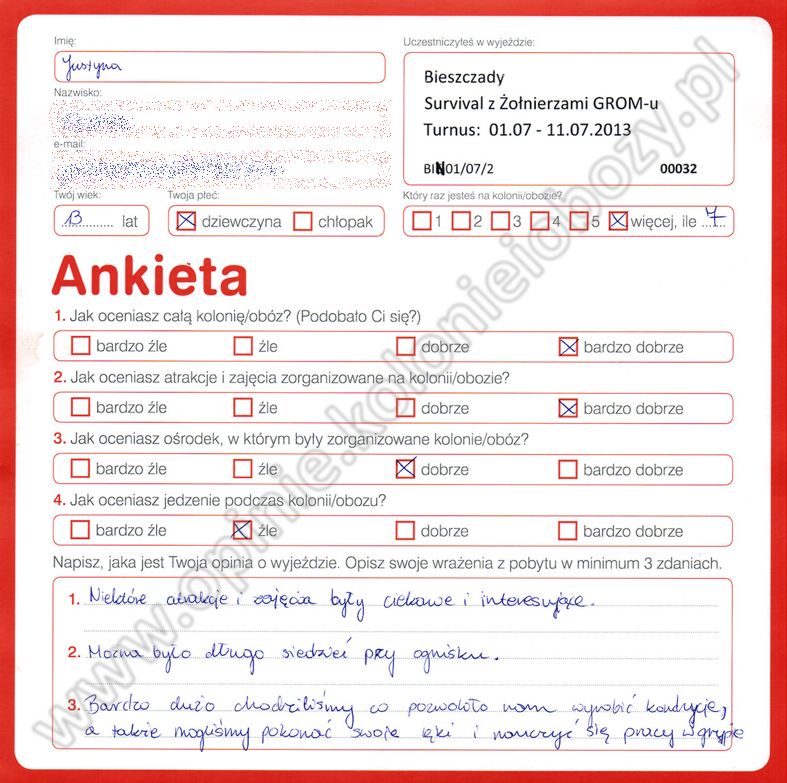 Imię:
Justyna
Nazwisko:
e-mail:
Twój wiek:
13 lat
Twoja płeć:
dziewczyna chłopak
Uczestniczyłeś w wyjeździe:
Bieszczady
Survival z Żołnierzami GROM-u
Turnus: 01.07 - 11.07.2013
BIN01/07/2 00032
Który raz jesteś na kolonii/obozie?
1 2 3 4 5 więcej, ile 7
Ankieta
1. Jak oceniasz całą kolonię/obóz? (Podobało Ci się?)
bardzo źle źle dobrze bardzo dobrze
2. Jak oceniasz atrakcje i zajęcia zorganizowane na kolonii/obozie?
bardzo źle źle dobrze bardzo dobrze
3. Jak oceniasz ośrodek, w którym były zorganizowane kolonie/obóz?
bardzo źle źle dobrze bardzo dobrze
4. Jak oceniasz jedzenie podczas kolonii/obozu?
bardzo źle źle dobrze bardzo dobrze
Napisz, jaka jest Twoja opinia o wyjeździe. Opisz swoje wrażenia z pobytu w minimum 3 zdaniach.
1. Niektóre atrakcje i zajęcia były ciekawe i interesujące.
2. Można było długo siedzieć przy ognisku.
3. Bardzo dużo chodziliśmy co pozwoliło nam wyrobić kondycję,
a także mogliśmy pokonać swoje lęki i nauczyć się pracy w grupie
www.opinie.kolonieiobozy.pl